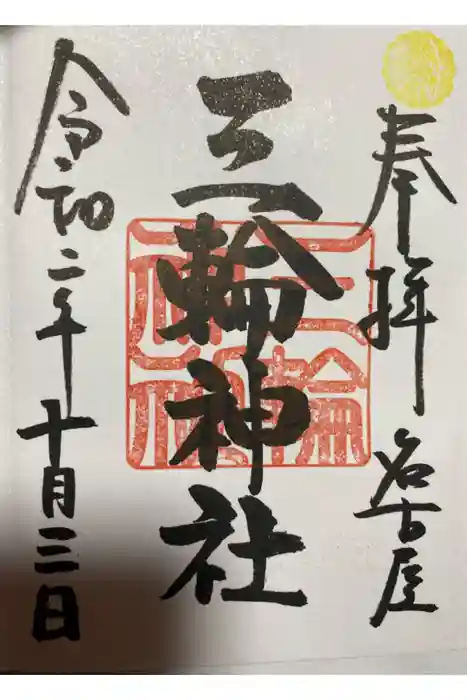 奉拝 名古屋
三輪神社
三輪
神社
令和二年十月三日